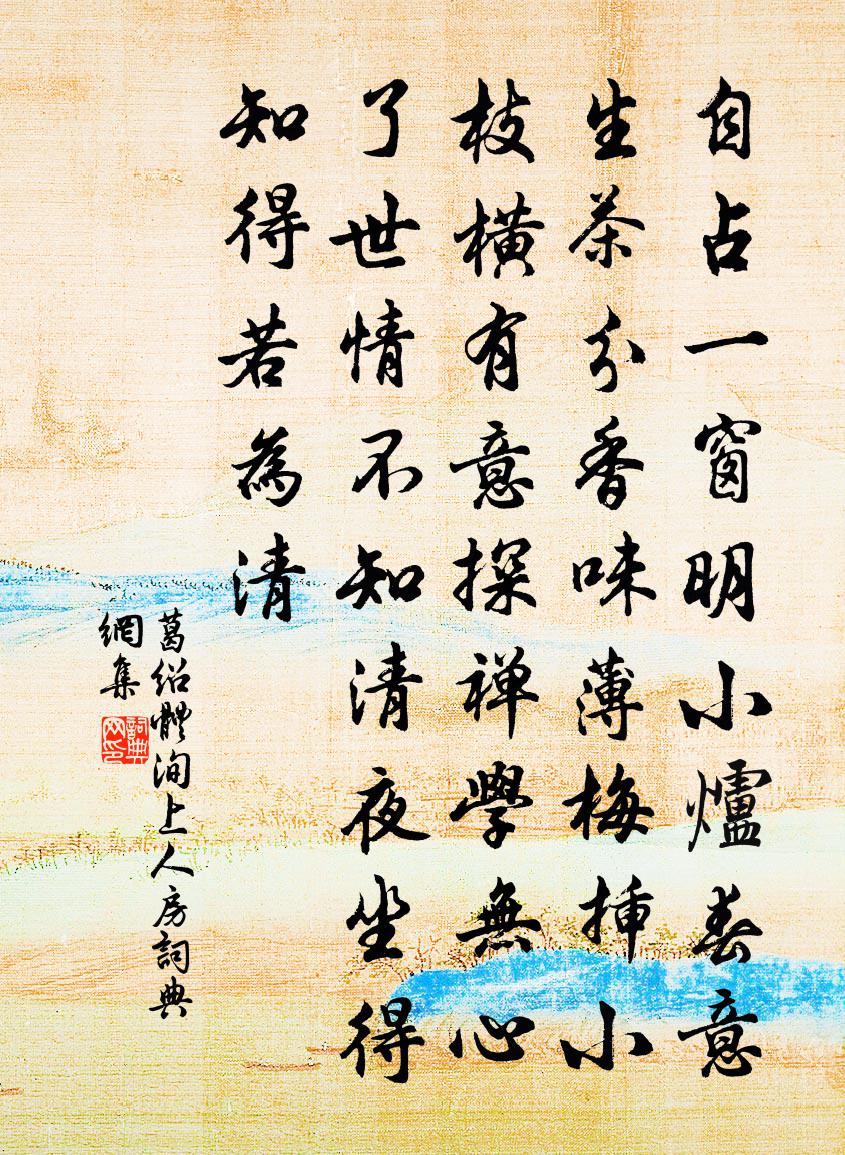 自占一窗明小爐春意
生茶分香味薄梅挿小
枝橫有意探禅學無心
了世情不知清夜坐得
知得若為清
葛紹體洵上人房詞典
網集
詞典网印